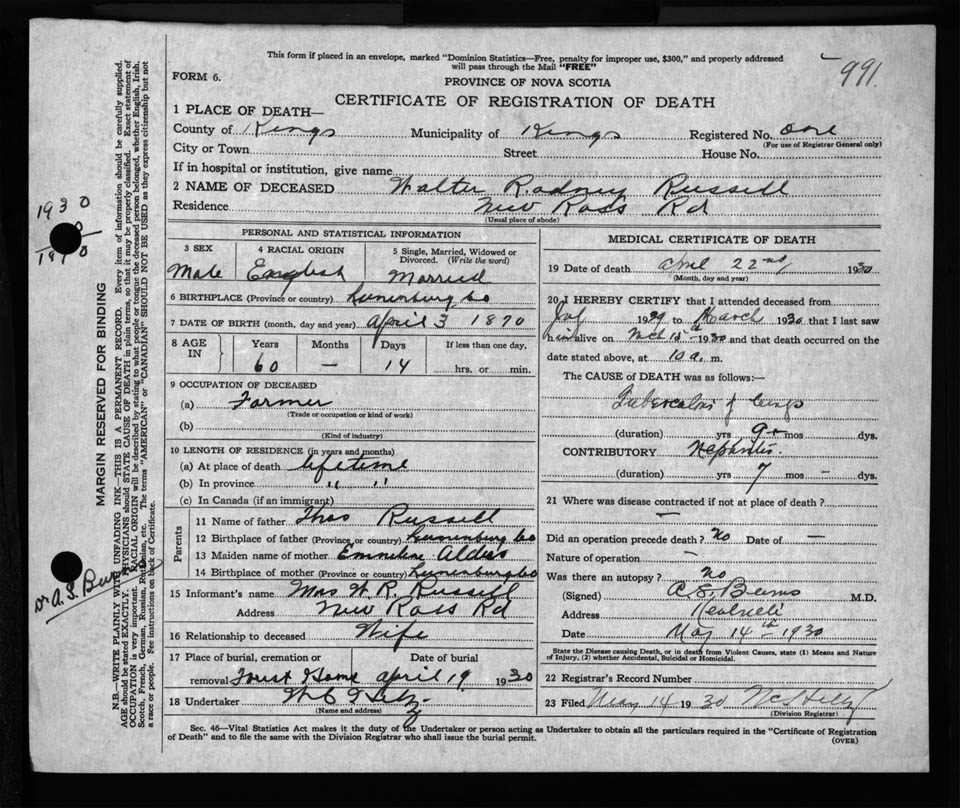 This form if placed in an envelope, marked "Dominion Statistics—Free, penalty for improper use, $300," and properly addressed
will pass through the Mail "FREE"
991.
FORM 6.
PROVINCE OF NOVA SCOTIA
CERTIFICATE OF REGISTRATION OF DEATH
1 PLACE OF DEATH—
County of Kings Municipality of Kings Registered No. one
(For use of Registrar General only)
City or Town Street House No.
If in hospital or institution, give name
2 NAME OF DECEASED Walter Rodney Russell
Residence New Ross Rd
(Usual place of abode)
PERSONAL AND STATISTICAL INFORMATION
3 SEX 4 RACIAL ORIGIN 5 Single, Married, Widowed or Divorced. (Write the word)
Male English Married
6 BIRTHPLACE (Province or country) Lunenburg Co
7 DATE OF BIRTH (month, day and year) April 3 1870
8 AGE IN Years Months Days If less than one day,
60 — 14 hrs. or min.
9 OCCUPATION OF DECEASED
(a) Farmer
(Trade or occupation or kind of work)
(b)
(Kind of industry)
10 LENGTH OF RESIDENCE (in years and months)
(a) At place of death lifetime
(b) In province " "
(c) In Canada (if an immigrant)
Parents
11 Name of father Thos Russell
12 Birthplace of father (Province or country) Lunenburg Co
13 Maiden name of mother Emmeline
14 Birthplace of mother (Province or country) Lunenburg Co
15 Informant's name Mrs W. R. Russell
Address New Ross Rd
16 Relationship to deceased Wife
17 Place of burial, cremation or Date of burial
removal Forest Home April 19 1930
18 Undertaker
(Name and address)
MEDICAL CERTIFICATE OF DEATH
19 Date of death April 22nd 1930
(Month, day and year)
20 I HEREBY CERTIFY that I attended deceased from
1929 to March 1930 that I last saw
him alive on Mch 15th 1930 and that death occurred on the
date stated above, at 10 a. m.
The CAUSE of DEATH was as follows:—
Tuberculosis of lungs
(duration) yrs 9+ mos dys.
CONTRIBUTORY Nephritis.
(duration) yrs 7 mos — dys.
21 Where was disease contracted if not at place of death?
—
Did an operation precede death? No Date of —
Nature of operation —
Was there an autopsy? No
(Signed) M.D.
Address
Date May 14th 1930
State the Disease causing Death, or in death from Violent Causes, state (1) Means and Nature
of Injury, (2) whether Accidental, Suicidal or Homicidal.
22 Registrar's Record Number
23 Filed May 14 1930
(Division Registrar)
Sec. 46—Vital Statistics Act makes it the duty of the Undertaker or person acting as Undertaker to obtain all the particulars required in the "Certificate of Registration
of Death" and to file the same with the Division Registrar who shall issue the burial permit.
(OVER)
1930
1870
MARGIN RESERVED FOR BINDING
N.B.—WRITE PLAINLY WITH UNFADING INK—THIS IS A PERMANENT RECORD. Every item of information should be carefully supplied.
AGE should be stated EXACTLY. PHYSICIANS should STATE CAUSE OF DEATH in plain terms, so that it may be properly classified. Exact statement of
OCCUPATION is very important. RACIAL ORIGIN will be described by stating to what people or tongue the deceased person belonged, whether English, Irish,
Scotch, French, German, Russian, etc. The terms "AMERICAN" or "CANADIAN" SHOULD NOT BE USED as they express citizenship but not
a race or people. See instructions on back of Certificate.